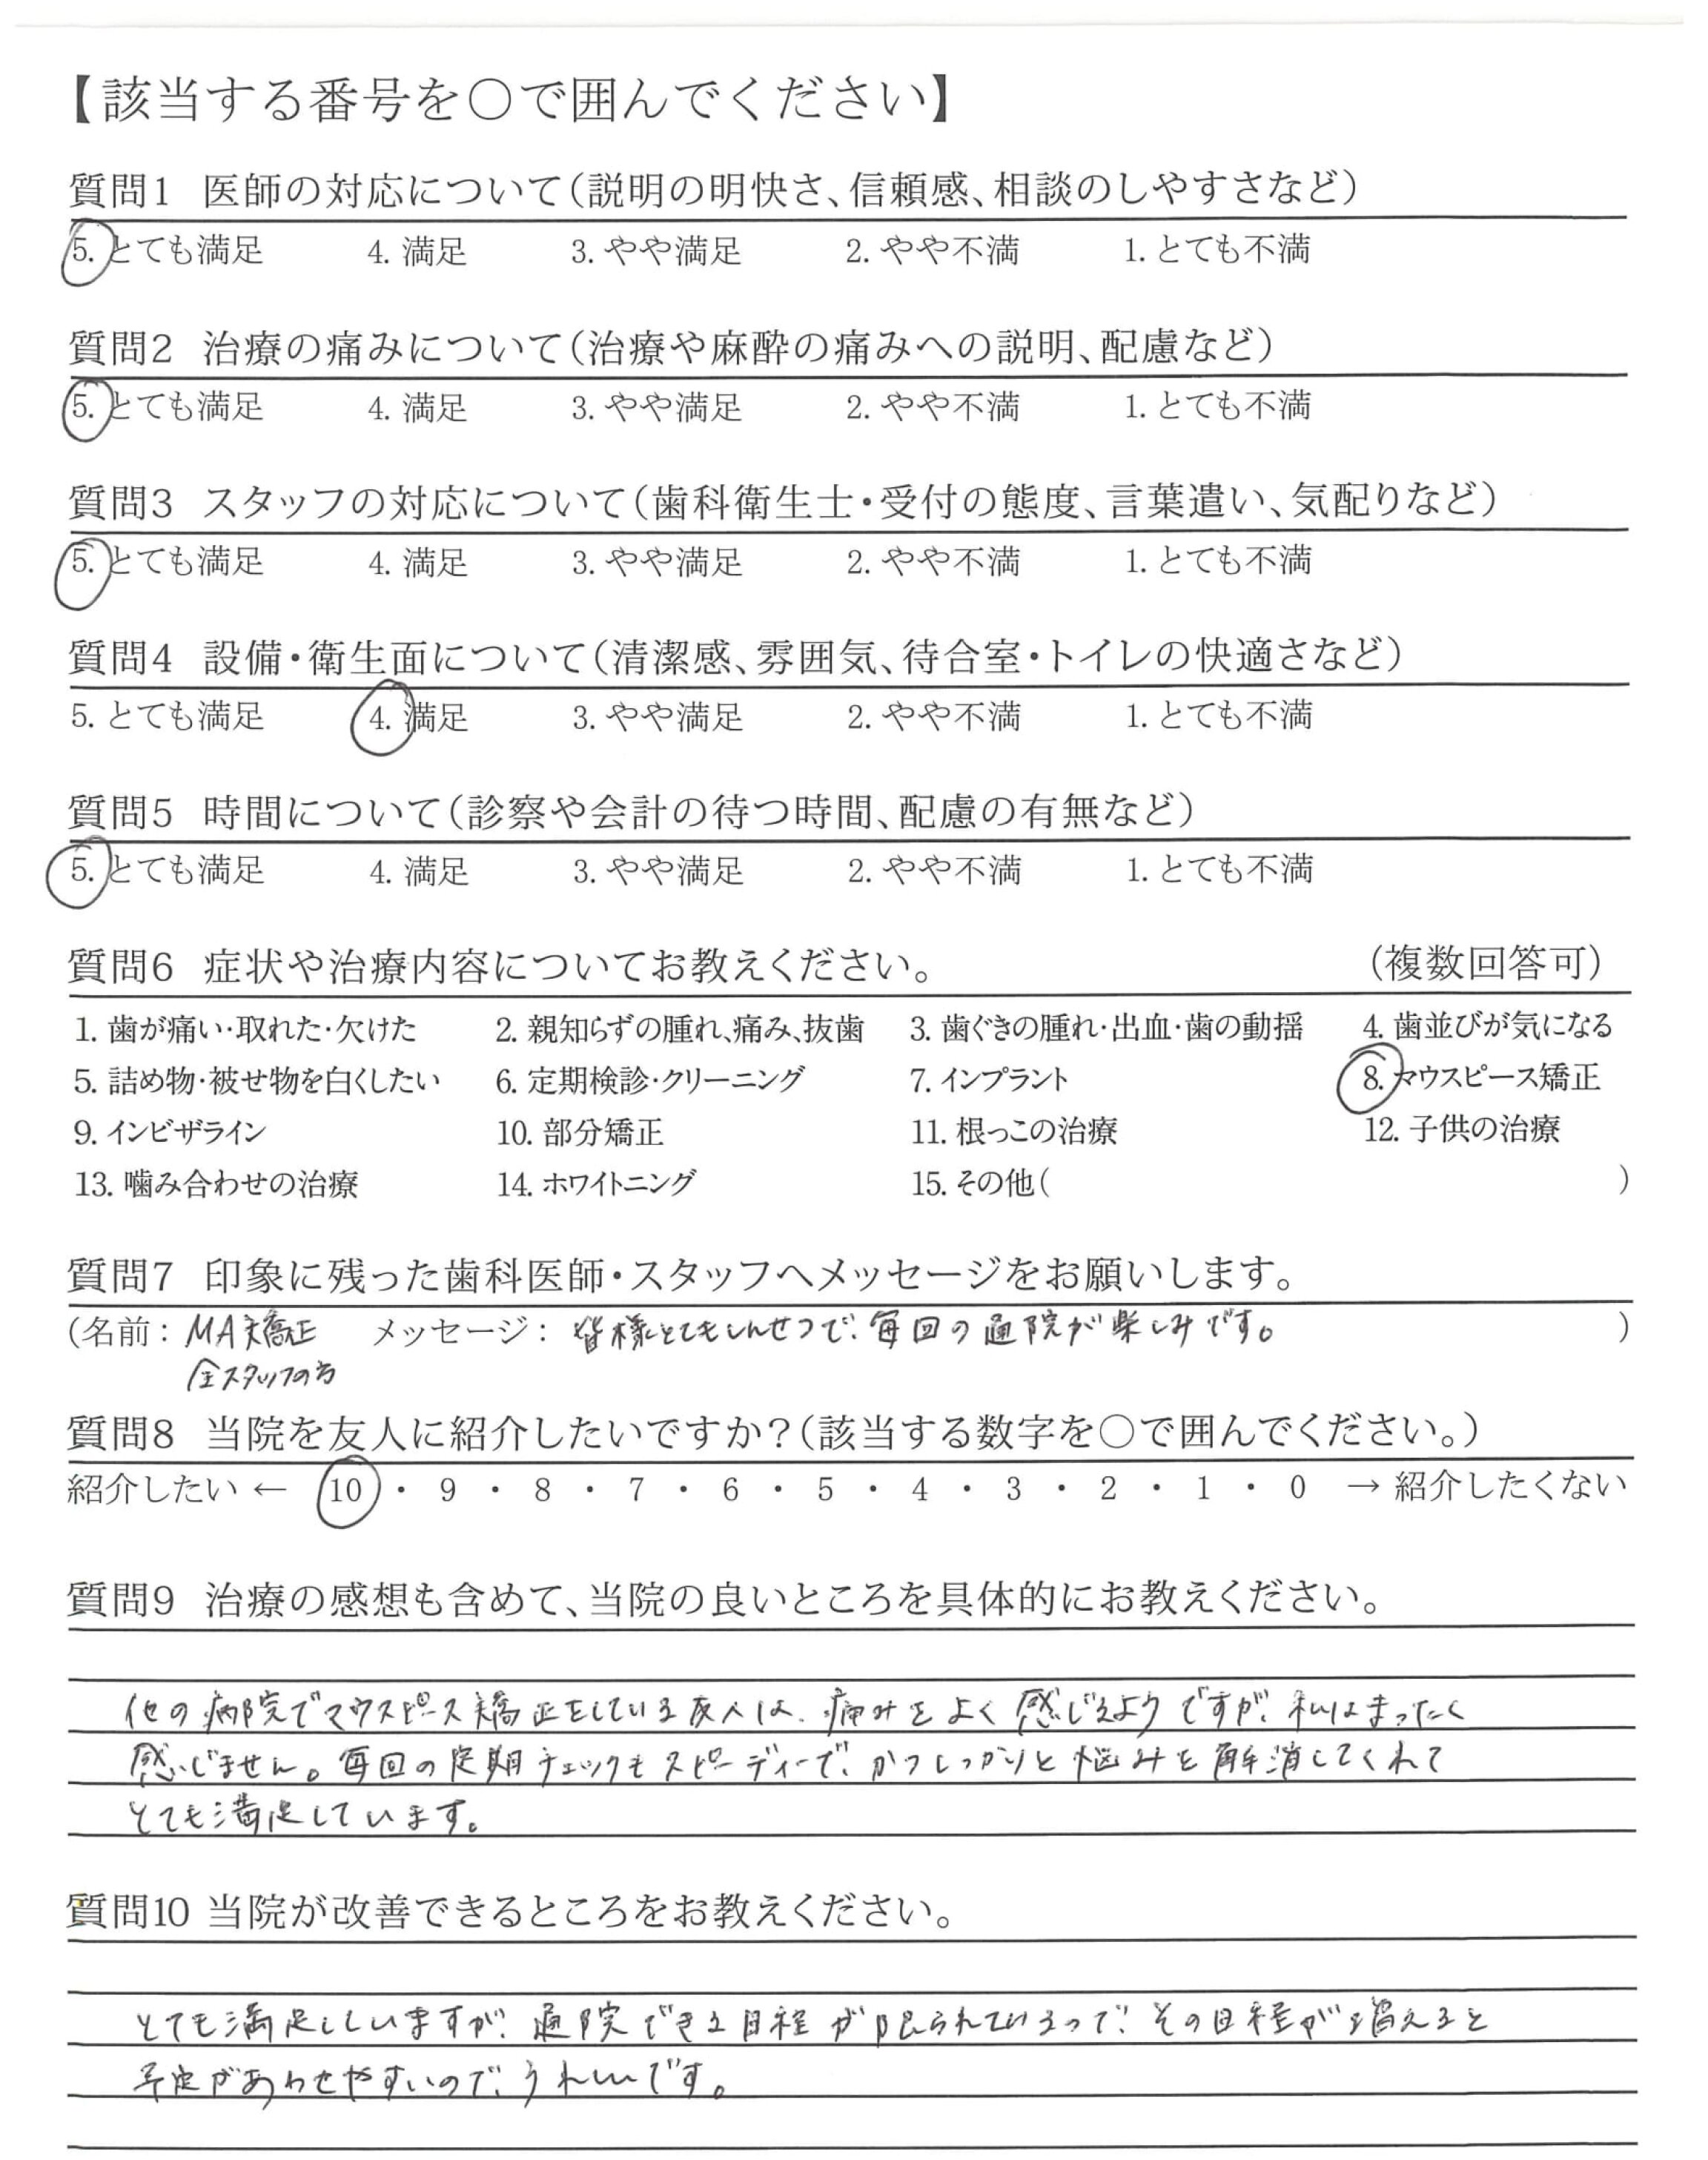 【該当する番号を○で囲んでください】
質問1 医師の対応について(説明の明快さ、信頼感、相談のしやすさなど)
5. とても満足 4. 満足 3. やや満足 2. やや不満 1. とても不満
質問2 治療の痛みについて(治療や麻酔の痛みへの説明、配慮など)
5. とても満足 4. 満足 3. やや満足 2. やや不満 1. とても不満
質問3 スタッフの対応について(歯科衛生士・受付の態度、言葉遣い、気配りなど)
5. とても満足 4. 満足 3. やや満足 2. やや不満 1. とても不満
質問4 設備・衛生面について(清潔感、雰囲気、待合室・トイレの快適さなど)
5. とても満足 4. 満足 3. やや満足 2. やや不満 1. とても不満
質問5 時間について(診察や会計の待つ時間、配慮の有無など)
5. とても満足 4. 満足 3. やや満足 2. やや不満 1. とても不満
質問6 症状や治療内容についてお教えください。 (複数回答可)
1. 歯が痛い・取れた・欠けた 2. 親知らずの腫れ、痛み、抜歯 3. 歯ぐきの腫れ・出血・歯の動揺 4. 歯並びが気になる
5. 詰め物・被せ物を白くしたい 6. 定期検診・クリーニング 7. インプラント 8. マウスピース矯正
9. インビザライン 10. 部分矯正 11. 根っこの治療 12. 子供の治療
13. 噛み合わせの治療 14. ホワイトニング 15. その他( )
質問7 印象に残った歯科医師・スタッフへメッセージをお願いします。
(名前: MA矯正 メッセージ: 皆様とてもしんせつで、毎回の通院が楽しみです。 )
全スタッフの方
質問8 当院を友人に紹介したいですか?(該当する数字を○で囲んでください。)
紹介したい ← 10 ・ 9 ・ 8 ・ 7 ・ 6 ・ 5 ・ 4 ・ 3 ・ 2 ・ 1 ・ 0 → 紹介したくない
質問9 治療の感想も含めて、当院の良いところを具体的にお教えください。
他の病院でマウスピース矯正をしている友人は、痛みをよく感じるようですが、私はまったく
感じません。毎回の定期チェックもスピーディーで、かつしっかりと悩みを解消してくれて
とても満足しています。
質問10 当院が改善できるところをお教えください。
とても満足していますが、通院できる日程が限られているので、その日程が増えると
予定があわせやすいので、うれしいです。